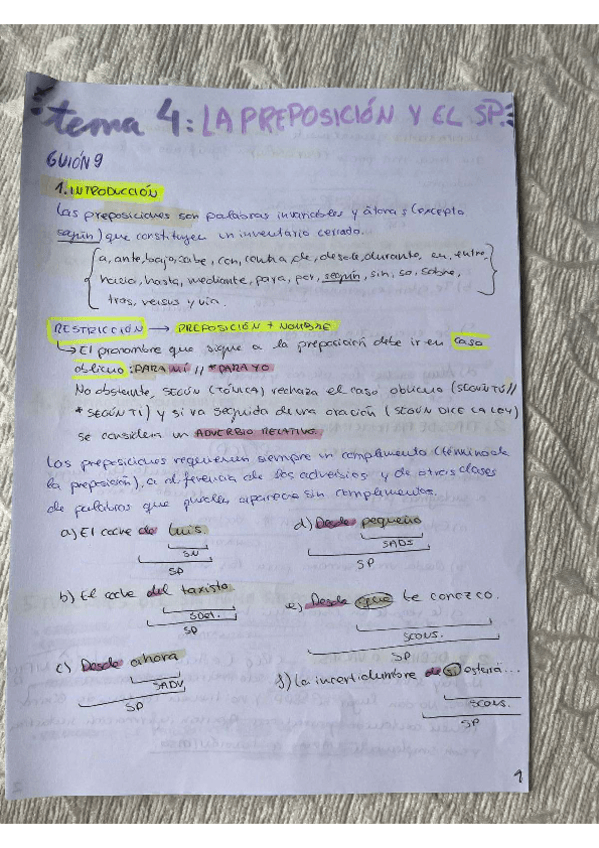 tema 4: LA PREPOSICIÓN Y EL SP.
GUIÓN 9
1. INTRODUCCIÓN
Las preposiciones son palabras invariables y átonas (excepto
según) que constituyen un inventario cerrado.
a, ante, bajo, cabe, con, contra, de, desde, durante, en, entre,
hacia, hasta, mediante, para, por, según, sin, so, sobre,
tras, versus y vía.
RESTRICCIÓN → PREPOSICIÓN + NOMBRE
↳ El pronombre que sigue a la preposición debe ir en caso
oblicuo: PARA MÍ // * PARA YO
No obstante, SEGÚN (TÓNICA) rechaza el caso oblicuo (SEGÚN TÚ //
* SEGÚN TI) y si va seguida de una oración (SEGÚN DICE LA LEY)
se considera un ADVERBIO RELATIVO.
Las preposiciones requieren siempre un complemento (término de
la preposición), a diferencia de los adverbios y de otras clases
de palabras que pueden aparecer sin complementos.
a) El coche de Luis.
SN
SP
b) El coche del taxista.
SDet.
SP
c) Desde ahora
SADV
SP
d) Desde pequeño
SADJ
SP
e) Desde que te conozco.
SCONJ.
SP
f) La incertidumbre de si estará...
SCONJ.
SP
1